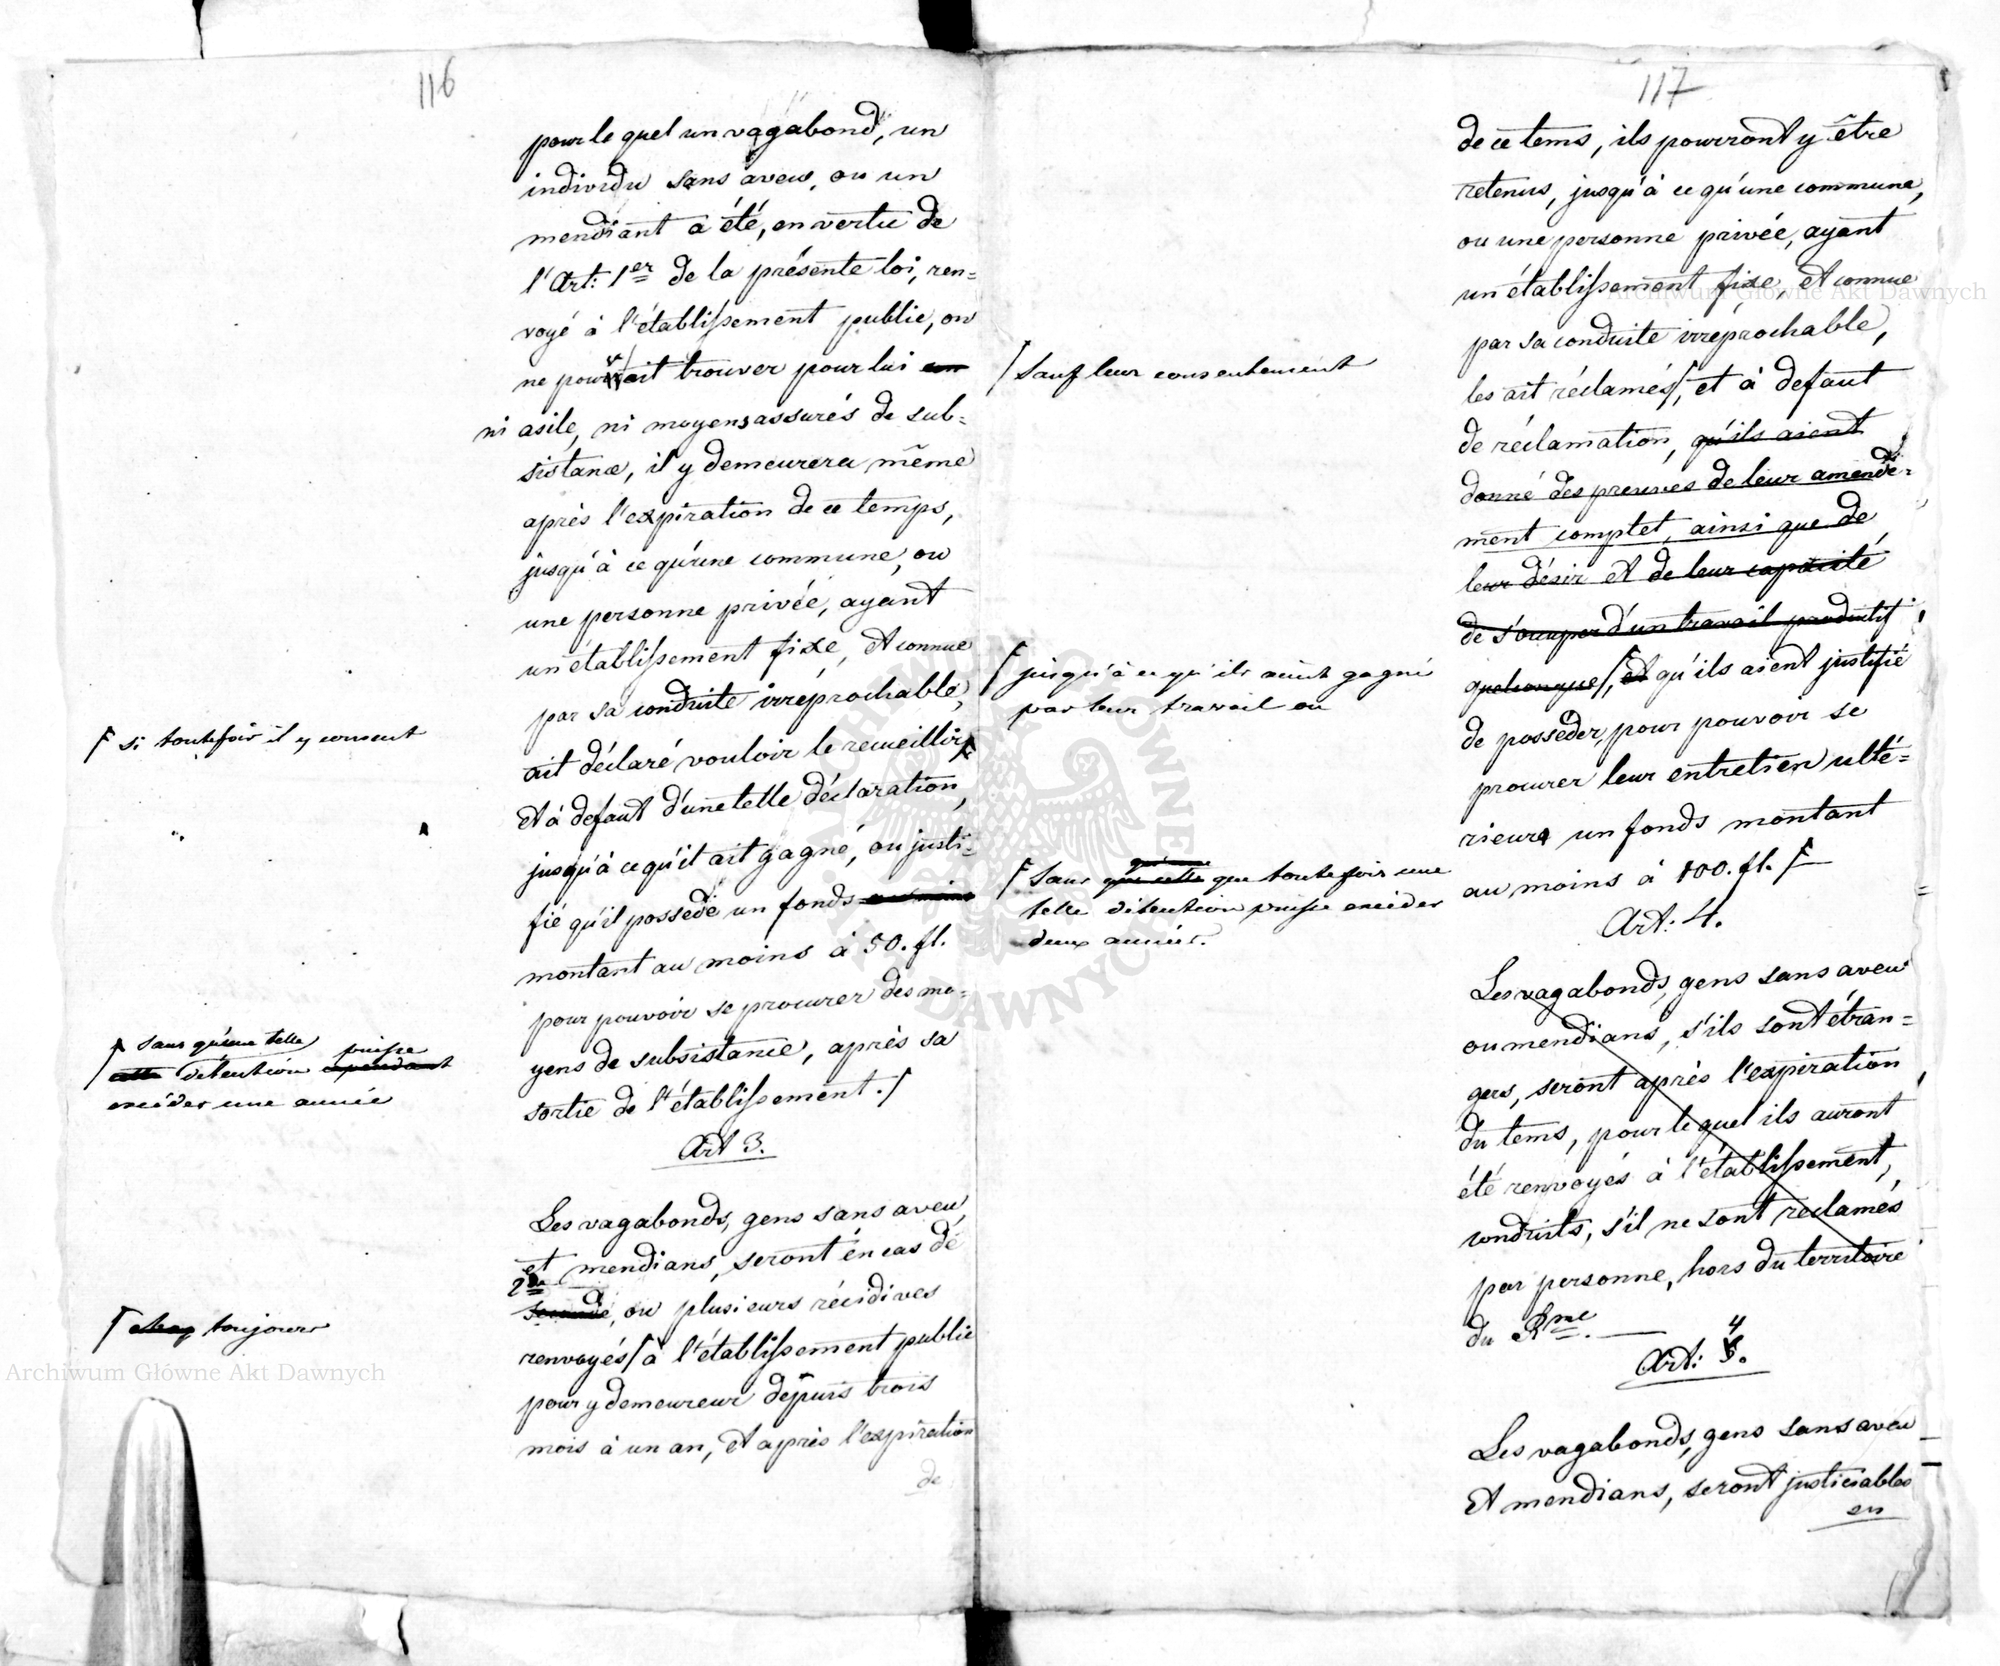 116
pour le quel un vagabond, un
individu sans aveu, ou un
mendiant a été, en vertu de
l'Art: 1er de la présente loi, ren=
voyé à l'établissement public, on
ne pourrait trouver pour lui
ni asile, ni moyens assurés de sub=
sistance, il y demeurera même
après l'expiration de ce temps,
jusqu'à ce qu'une commune, ou
une personne privée, ayant
un établissement fixe, et connue
par sa conduite irréprochable,
ait déclaré vouloir le recueillir
et à defaut d'une telle déclaration,
jusqu'à ce qu'il ait gagné, ou justi=
fié qu'il possède un fonds au moins
montant au moins à 50. fl.
pour pouvoir se procurer des mo=
yens de subsistance, après sa
sortie de l'établissement.
Art 3.
Les vagabonds, gens sans aveu,
et mendians, seront en cas de
2de
seconde, ou plusieurs récidives
renvoyés à l'établissement public
pour y demeureur depuis trois
mois à un an, et après l'expiration
de
si toutefois il y consent
sans qu'une telle
cette détention puisse cependant
excéder une année
toujours
117
de ce tems, ils pourront y être
retenus, jusqu'à ce qu'une commune,
ou une personne privée, ayant
un établissement fixe, et connue
par sa conduite irréprochable,
les ait réclamés, et à defaut
de réclamation, qu'ils aient
donné des preuves de leur amende=
ment complet, ainsi que de
leur désir et de leur capacité
de s'occuper d'un travail productif
quelconque, et qu'ils aient justifié
de posséder, pour pouvoir se
procurer leur entretien ulté=
rieur un fonds montant
au moins à 100. fl.
Art: 4.
Les vagabonds, gens sans aveu
ou mendians, s'ils sont étran=
gers, seront après l'expiration
du tems, pour le quel ils auront
été renvoyés à l'établissement,
conduits, s'il ne sont reclamés
par personne, hors du territoire
du Rme.
4
Art: 5.
Les vagabonds, gens sans aveu
et mendians, seront justiciables
en
sauf leur consentement
jusqu'à ce qu'ils aient gagné
par leur travail ou
sans que cette que toutefois une
telle détention puisse excéder
deux années.
Archiwum Główne Akt Dawnych
Archiwum Główne Akt Dawnych
ARCHIWUM GŁÓWNE AKT DAWNYCH